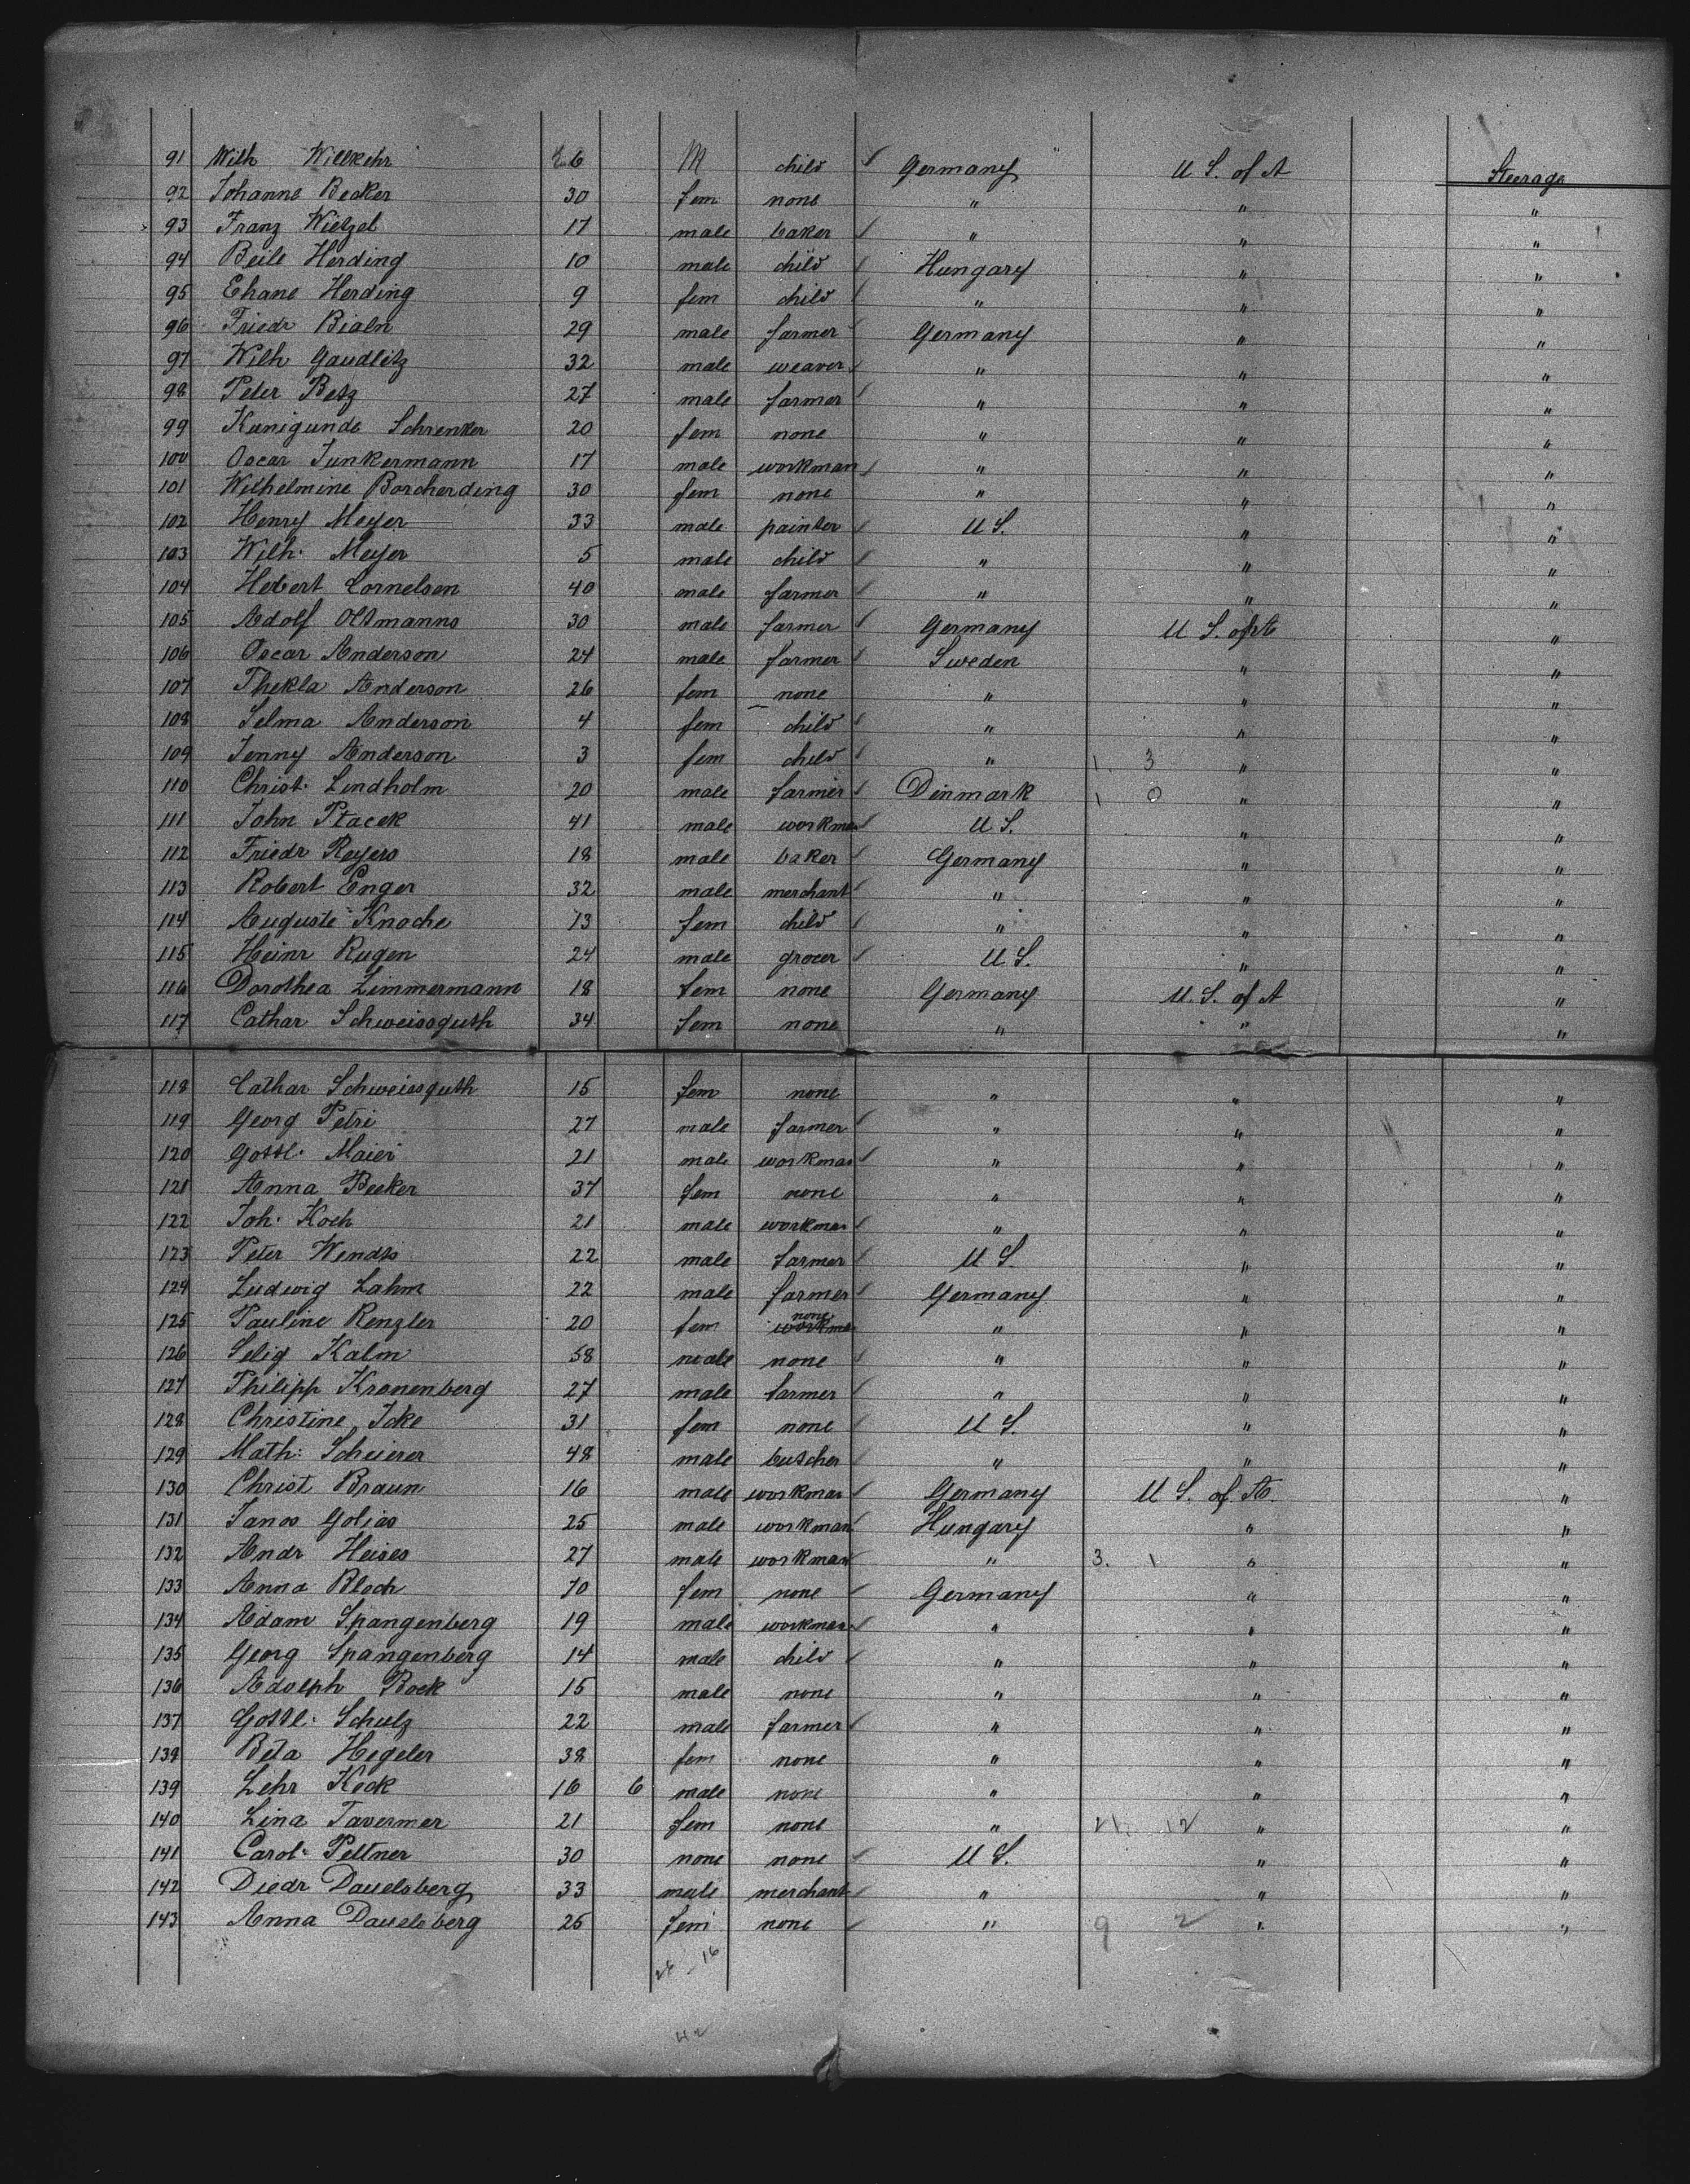 91 Wilh Willkehr 6 M child Germany U S. of A Steerage
92 Johanne Becker 30 fem none " " "
93 Franz Wietzel 17 male baker " " "
94 Beile Herding 10 male child Hungary " "
95 Chane Herding 9 fem child " " "
96 Friedr Bialn 29 male farmer Germany " "
97 Wilh Gaudlitz 32 male weaver " " "
98 Peter Betz 27 male farmer " " "
99 Kunigunde Schrenker 20 fem none " " "
100 Oscar Junkermann 17 male workman " " "
101 Wilhelmine Borcherding 30 fem none " " "
102 Henry Meyer 33 male painter U S. " "
103 Wilh. Meyer 5 male child " " "
104 Hebert Cornelsen 40 male farmer " " "
105 Adolf Oltmanns 30 male farmer Germany U S. of A "
106 Oscar Anderson 24 male farmer Sweden " "
107 Thekla Anderson 26 fem none " " "
108 Selma Anderson 4 fem child " " "
109 Jenny Anderson 3 fem child " 1. 3 " "
110 Christ. Lindholm 20 male farmer Dinmark 1 0 " "
111 John Ptacek 41 male workman U S. " "
112 Friedr Reyers 18 male baker Germany " "
113 Robert Enger 32 male merchant " " "
114 Auguste Knoche 13 fem child " " "
115 Heinr Rugen 24 male grocer U. S. " "
116 Dorothea Zimmermann 18 fem none Germany U. S. of A "
117 Cathar Schweissguth 34 fem none " " "
118 Cathar Schweissguth 15 fem none " " "
119 Georg Petri 27 male farmer " " "
120 Gottl. Maier 21 male workman " " "
121 Anna Becker 37 fem none " " "
122 Joh. Koch 21 male workman " " "
123 Peter Wendts 22 male farmer U S. " "
124 Ludwig Lahm 22 male farmer Germany " "
125 Pauline Renzler 20 fem none workman " " "
126 Selig Kalm 58 male none " " "
127 Philipp Kronenberg 27 male farmer " " "
128 Christine Icke 31 fem none U S. " "
129 Math: Scheierer 48 male butcher " " "
130 Christ Braun 16 male workman Germany U S. of A. "
131 Janos Golias 25 male workman Hungary " "
132 Andr Heises 27 male workman " 3. 1 " "
133 Anna Bloch 70 fem none Germany " "
134 Adam Spangenberg 19 male workman " " "
135 Georg Spangenberg 14 male child " " "
136 Adolph Bock 15 male none " " "
137 Gottl. Schulz 22 male farmer " " "
138 Beta Hegeler 38 fem none " " "
139 Lehr Keck 16 6 male none " " "
140 Lina Tavermer 21 fem none " 21. 12 " "
141 Carol. Peltner 30 none none U S. " "
142 Diedr Dauelsberg 33 male merchant " " "
143 Anna Dauelsberg 25 fem none " 9 2 " "
26 - 16
42